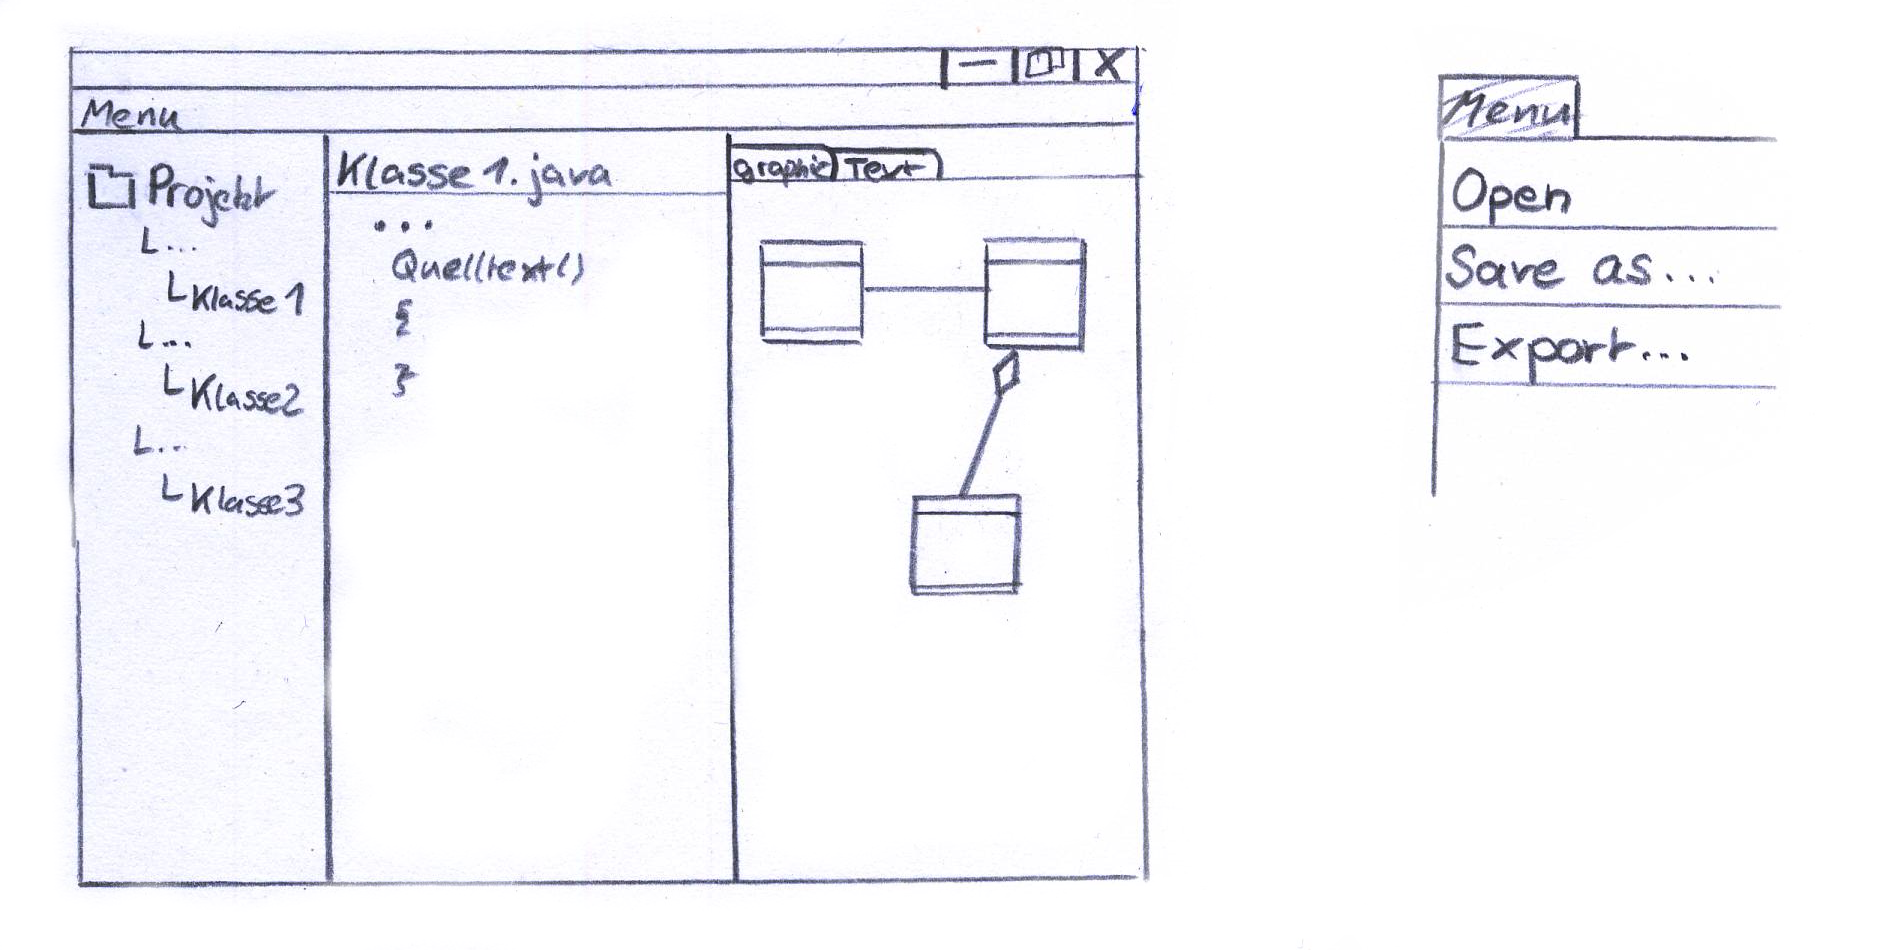 Menu
Projekt
...
Klasse 1
...
Klasse2
...
Klasse3
Klasse 1. java
...
Quelltext()
{
}
graphic
Text
Menu
Open
Save as...
Export...